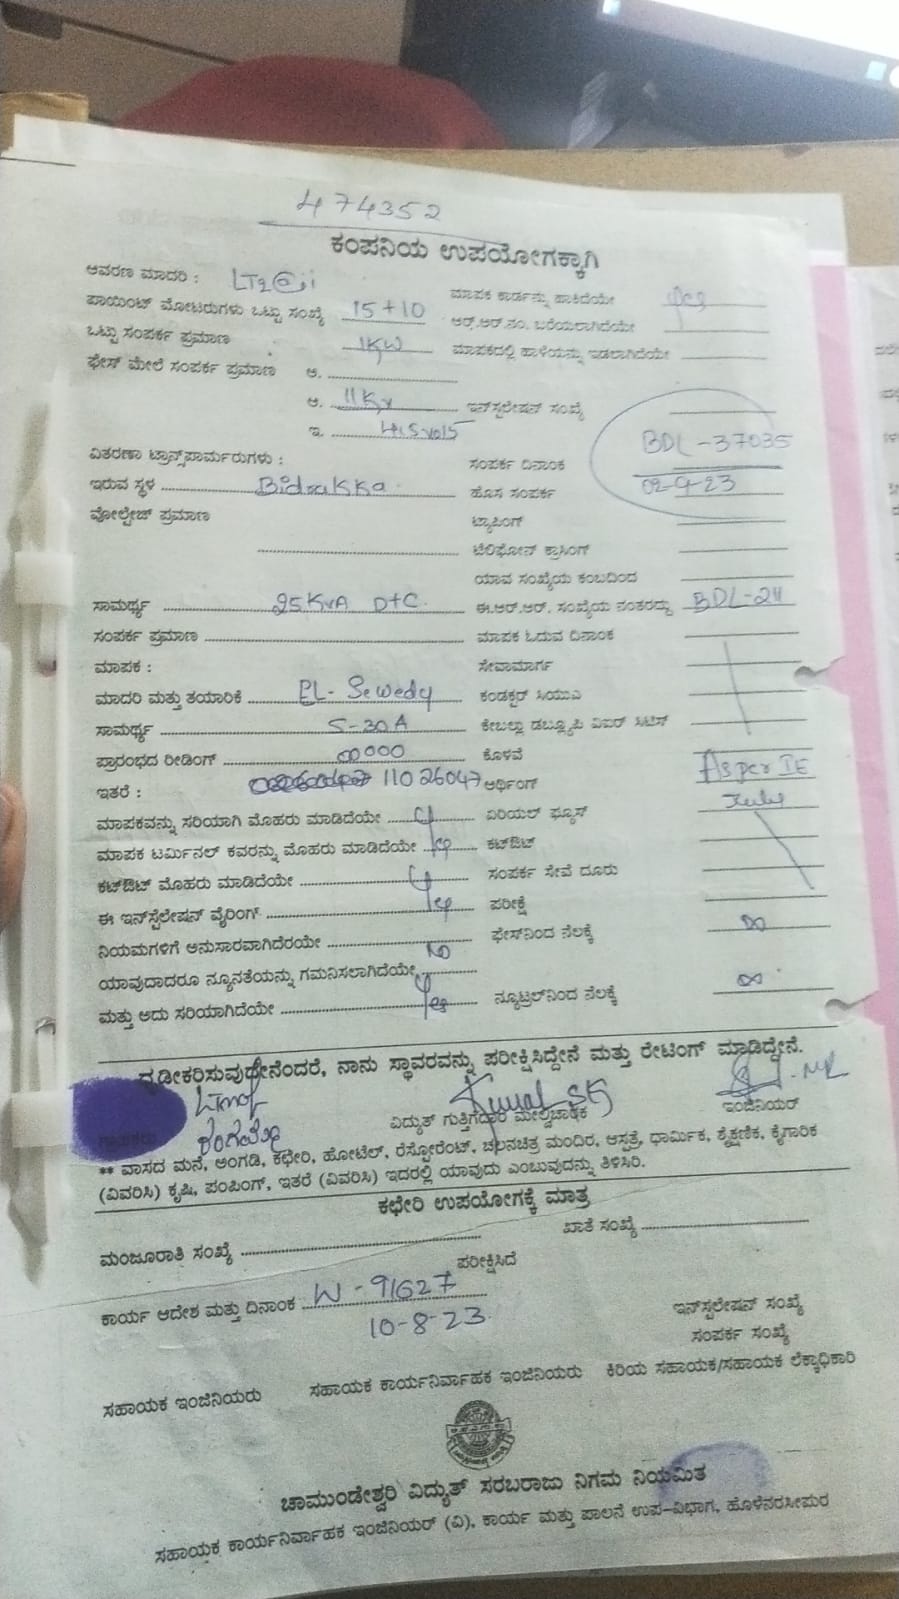 474352
ಕಂಪನಿಯ ಉಪಯೋಗಕ್ಕಾಗಿ
ಆವರಣ ಮಾದರಿ : LT2
ಮಾಪಕ ಕಾರ್ಡನ್ನು ಹಾಕಿದೆಯೇ
ಪಾಯಿಂಟ್ ಮೋಟರುಗಳು ಒಟ್ಟು ಸಂಖ್ಯೆ 15+10
ಆರ್.ಆರ್.ನಂ. ಬರೆಯಲಾಗಿದೆಯೇ
ಒಟ್ಟು ಸಂಪರ್ಕ ಪ್ರಮಾಣ 1KW
ಮಾಪಕದಲ್ಲಿ ಹಾಳೆಯನ್ನು ಇಡಲಾಗಿದೆಯೇ
ಫೇಸ್ ಮೇಲೆ ಸಂಪರ್ಕ ಪ್ರಮಾಣ ಅ.
ಆ. 11Kv ಇನ್‌ಸ್ಟಲೇಷನ್ ಸಂಖ್ಯೆ
BDL-37035
ಇ.
ವಿತರಣಾ ಟ್ರಾನ್ಸ್‌ಫಾರ್ಮರುಗಳು : ಸಂಪರ್ಕ ದಿನಾಂಕ
ಇರುವ ಸ್ಥಳ Bidrakka ಹೊಸ ಸಂಪರ್ಕ 02-9-23
ವೋಲ್ಟೇಜ್ ಪ್ರಮಾಣ ಟ್ಯಾಪಿಂಗ್
ಟೆಲಿಫೋನ್ ಕ್ರಾಸಿಂಗ್
ಯಾವ ಸಂಖ್ಯೆಯ ಕಂಬದಿಂದ
ಸಾಮರ್ಥ್ಯ 25KVA DTC. ಈ.ಆರ್.ಆರ್. ಸಂಖ್ಯೆಯ ನಂತರದ್ದು
ಸಂಪರ್ಕ ಪ್ರಮಾಣ ಮಾಪಕ ಓದುವ ದಿನಾಂಕ
ಮಾಪಕ : ಸೇವಾಮಾರ್ಗ
ಮಾದರಿ ಮತ್ತು ತಯಾರಿಕೆ EL- Sewedy ಕಂಡಕ್ಟರ್ ಸಿಯುಎ
ಸಾಮರ್ಥ್ಯ 5-30A ಕೇಬಲ್ಲು ಡಬ್ಲ್ಯೂಪಿ ವಿಐಆರ್
ಪ್ರಾರಂಭದ ರೀಡಿಂಗ್ 00000 ಕೊಳವೆ
ಇತರೆ : 11026047 ಅರ್ಥಿಂಗ್ As per IE
ಮಾಪಕವನ್ನು ಸರಿಯಾಗಿ ಮೊಹರು ಮಾಡಿದೆಯೇ ಏರಿಯಲ್ ಫ್ಯೂಸ್
ಮಾಪಕ ಟರ್ಮಿನಲ್ ಕವರನ್ನು ಮೊಹರು ಮಾಡಿದೆಯೇ ಕಟ್‌ಔಟ್
ಕಟ್‌ಔಟ್ ಮೊಹರು ಮಾಡಿದೆಯೇ ಸಂಪರ್ಕ ಸೇವೆ ದೂರು
ಈ ಇನ್‌ಸ್ಟೆಲೇಷನ್ ವೈರಿಂಗ್ ಪರೀಕ್ಷೆ
ನಿಯಮಗಳಿಗೆ ಅನುಸಾರವಾಗಿದೆರಯೇ ಫೇಸ್‌ನಿಂದ ನೆಲಕ್ಕೆ ∞
ಯಾವುದಾದರೂ ನ್ಯೂನತೆಯನ್ನು ಗಮನಿಸಲಾಗಿದೆಯೇ No
ಮತ್ತು ಅದು ಸರಿಯಾಗಿದೆಯೇ ನ್ಯೂಟ್ರಲ್‌ನಿಂದ ನೆಲಕ್ಕೆ ∞
ದೃಢೀಕರಿಸುವುದೇನೆಂದರೆ, ನಾನು ಸ್ಥಾವರವನ್ನು ಪರೀಕ್ಷಿಸಿದ್ದೇನೆ ಮತ್ತು ರೇಟಿಂಗ್ ಮಾಡಿದ್ದೇನೆ.
ವಿದ್ಯುತ್ ಗುತ್ತಿಗೆದಾರ ಮೇಲ್ವಿಚಾರಕ ಇಂಜಿನಿಯರ್
** ವಾಸದ ಮನೆ, ಅಂಗಡಿ, ಕಛೇರಿ, ಹೋಟೆಲ್, ರೆಸ್ಟೋರೆಂಟ್, ಚಲನಚಿತ್ರ ಮಂದಿರ, ಆಸ್ಪತ್ರೆ, ಧಾರ್ಮಿಕ, ಶೈಕ್ಷಣಿಕ, ಕೈಗಾರಿಕ
(ವಿವರಿಸಿ) ಕೃಷಿ, ಪಂಪಿಂಗ್, ಇತರೆ (ವಿವರಿಸಿ) ಇದರಲ್ಲಿ ಯಾವುದು ಎಂಬುವುದನ್ನು ತಿಳಿಸಿರಿ.
ಕಛೇರಿ ಉಪಯೋಗಕ್ಕೆ ಮಾತ್ರ
ಮಂಜೂರಾತಿ ಸಂಖ್ಯೆ ಖಾತೆ ಸಂಖ್ಯೆ
ಪರೀಕ್ಷಿಸಿದೆ
ಕಾರ್ಯ ಆದೇಶ ಮತ್ತು ದಿನಾಂಕ W-91627
10-8-23
ಇನ್‌ಸ್ಟಲೇಷನ್ ಸಂಖ್ಯೆ
ಸಂಪರ್ಕ ಸಂಖ್ಯೆ
ಸಹಾಯಕ ಇಂಜಿನಿಯರು ಸಹಾಯಕ ಕಾರ್ಯನಿರ್ವಾಹಕ ಇಂಜಿನಿಯರು ಕಿರಿಯ ಸಹಾಯಕ/ಸಹಾಯಕ ಲೆಕ್ಕಾಧಿಕಾರಿ
ಚಾಮುಂಡೇಶ್ವರಿ ವಿದ್ಯುತ್ ಸರಬರಾಜು ನಿಗಮ ನಿಯಮಿತ
ಸಹಾಯಕ ಕಾರ್ಯನಿರ್ವಾಹಕ ಇಂಜಿನಿಯರ್ (ವಿ), ಕಾರ್ಯ ಮತ್ತು ಪಾಲನೆ ಉಪ-ವಿಭಾಗ, ಹೊಳೆನರಸೀಪುರ